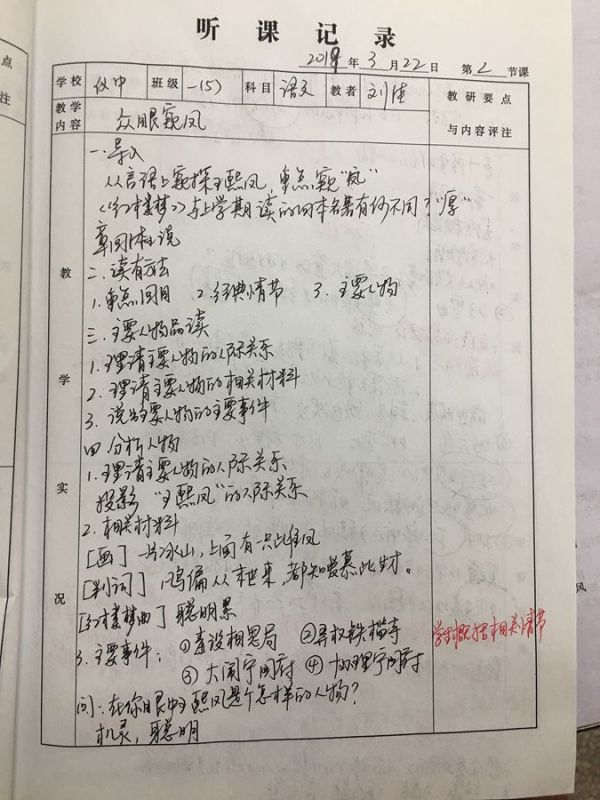 听课记录
2019年3月22日 第2节课
学校 仪中 班级 一(5) 科目 语文 教者 刘佳 教研要点
与内容评注
教学内容 众眼窥凤
教学实况
一.导入
从言语上窥探王熙凤,重点窥"凤"
《红楼梦》与上学期读的四本名著有何不同?"厚"
章回体小说
二.读有方法
1.重点回目 2.经典情节 3.主要人物
三.主要人物品读
1.理清主要人物的人际关系
2.理清主要人物的相关材料
3.说出主要人物的主要事件
四.分析人物
1.理清主要人物的人际关系
投影 "王熙凤"的人际关系
2.相关材料
[画] 一片冰山,上面有一只雌凤
[判词] 凡鸟偏从末世来,都知爱慕此生才。
[红楼梦曲] 聪明累
3.主要事件: ①毒设相思局 ②弄权铁槛寺
③大闹宁国府 ④协理宁国府
学生概括相关情节
问:在你眼中王熙凤是个怎样的人物?
机灵,聪明
点
评注
风